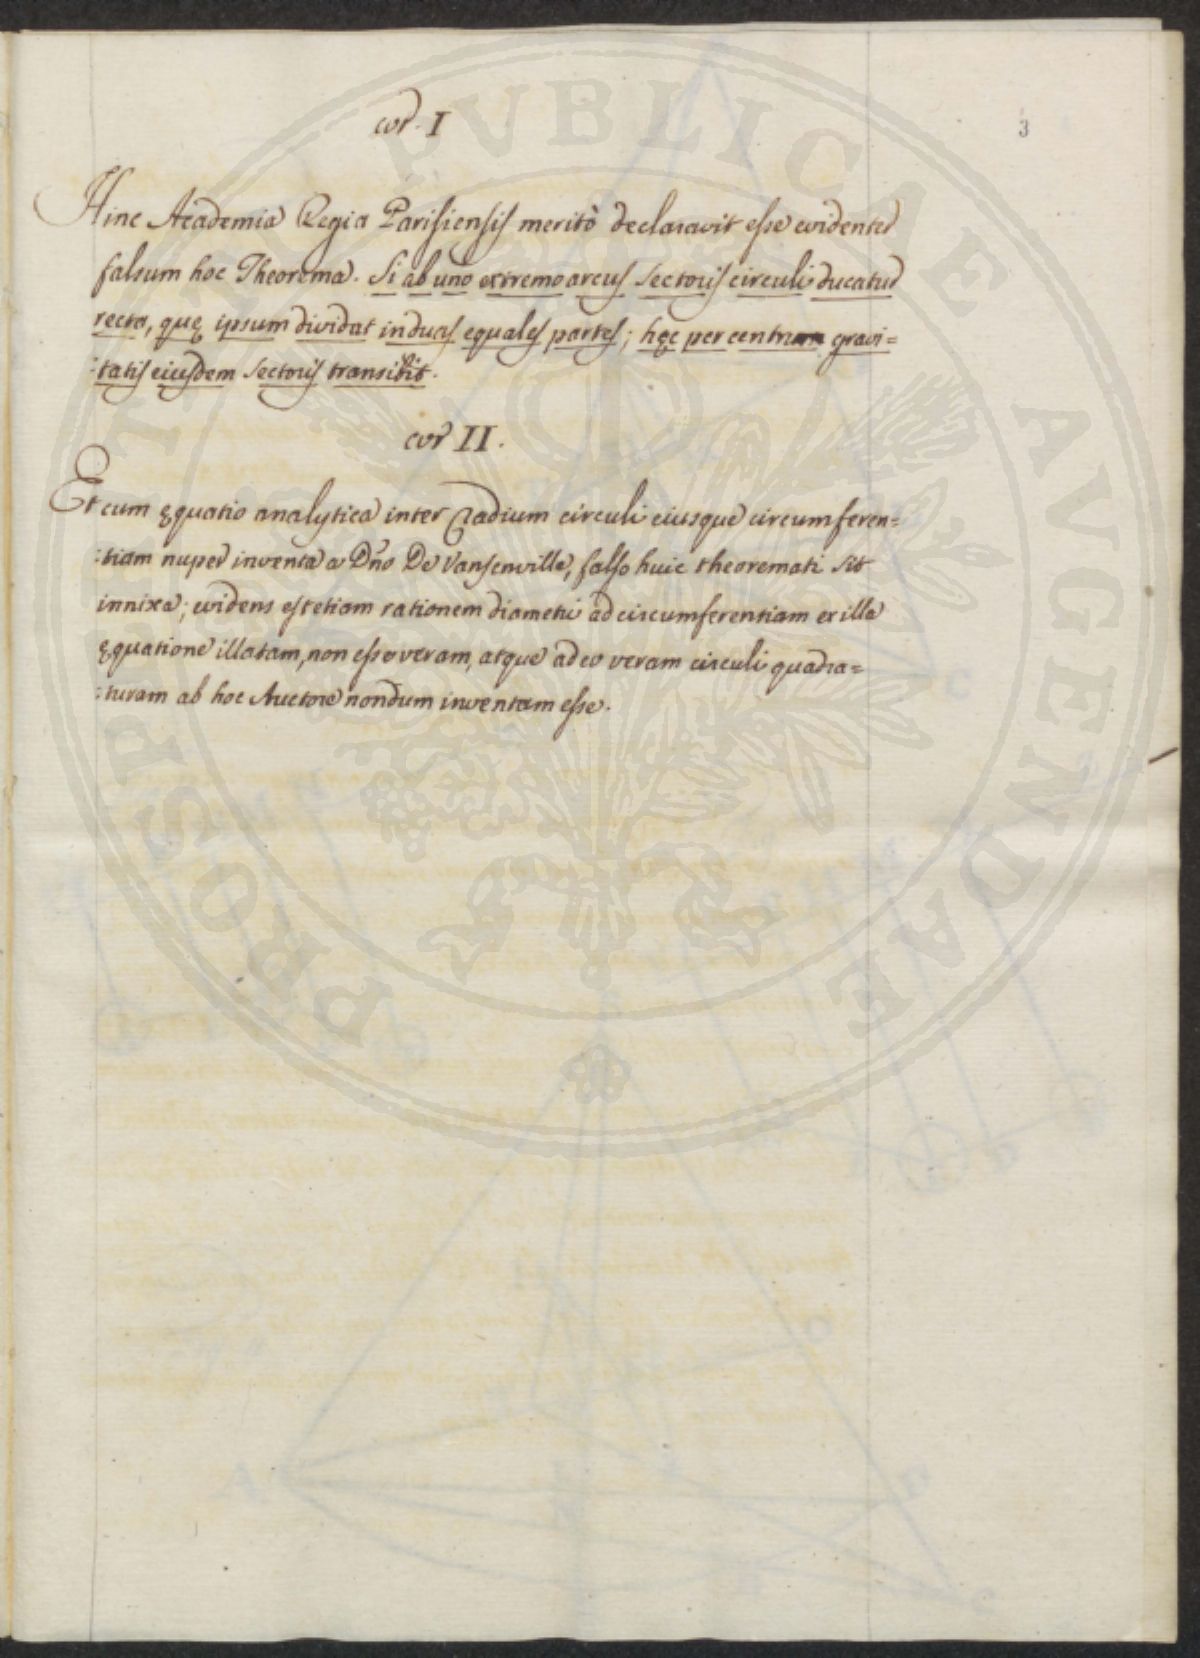 3
cor. I
Hinc Academia Regia Parisiensis meritò declaravit esse evidenter
falsum hoc Theorema. Si ab uno extremo arcus sectoris circuli ducatur
recta, quę ipsum dividat in duas equales partes; hęc per centrum gravi=
:tatis eiusdem sectoris transibit.
cor II.
Et cum ęquatio analytica inter Radium circuli eiusque circumferen=
:tiam nuper inventa a Dño De Vansenville, falso huic theoremati sit
innixa; evidens est etiam rationem diametri ad circumferentiam ex illa
ęquatione illatam, non esse veram, atque adeo veram circuli quadra=
:turam ab hoc Auctore nondum inventam esse.
PROSPERITATI PUBLICAE AUGENDAE